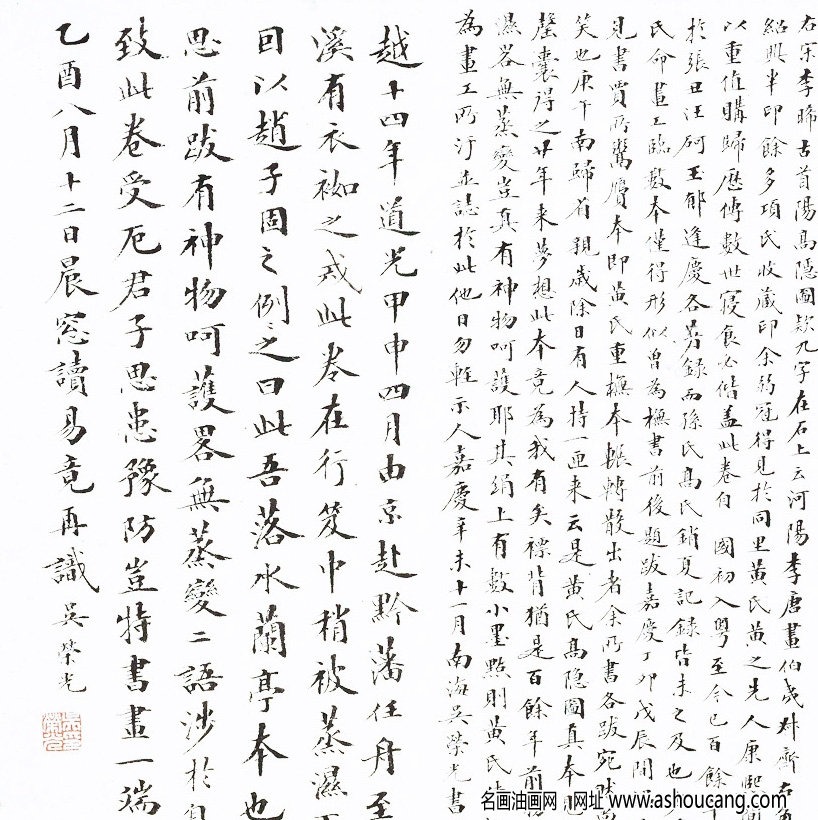 右宋李晞古首陽高隱圖款九字在石上云河陽李唐畫伯夷叔齊右角
紹興半印餘多項氏收藏印余弱冠得見於同里黃氏黃之先人康熙間
以重值購歸歷傳數世寢食必偕蓋此卷自 國初入粵至今已百餘年
於張丑汪砢玉郁逢慶各著錄而孫氏高氏銷夏記錄皆未之及也
氏命畫工臨數本僅得形似曾為橅書前後題跋嘉慶丁卯戊辰間
見書賈所鬻贋本即黃氏重橅本輾轉散出者余所書各跋宛然
笑也庚午南歸省親歲除日有人持一匣来云是黃氏高隱圖真本
罄囊得之廿年来夢想此本竟為我有矣褾背猶是百餘年前
濕畧無蒸變豈真有神物呵護耶其絹上有數小墨點則黃氏
為畫工所汙並誌於此他日勿輕示人嘉慶辛未十一月南海吳榮光書
越十四年道光甲申四月由京赴黔藩任舟至
溪有衣袽之戒此卷在行笈中稍被蒸濕
回以趙子固之例例之曰此吾落水蘭亭本也
思前跋有神物呵護畧無蒸變二語涉於自
致此卷受厄君子思患豫防豈特書畫一端
乙酉八月十二日晨窓讀易竟再識 吳榮光
名画油画网 网址 www.ashoucang.com